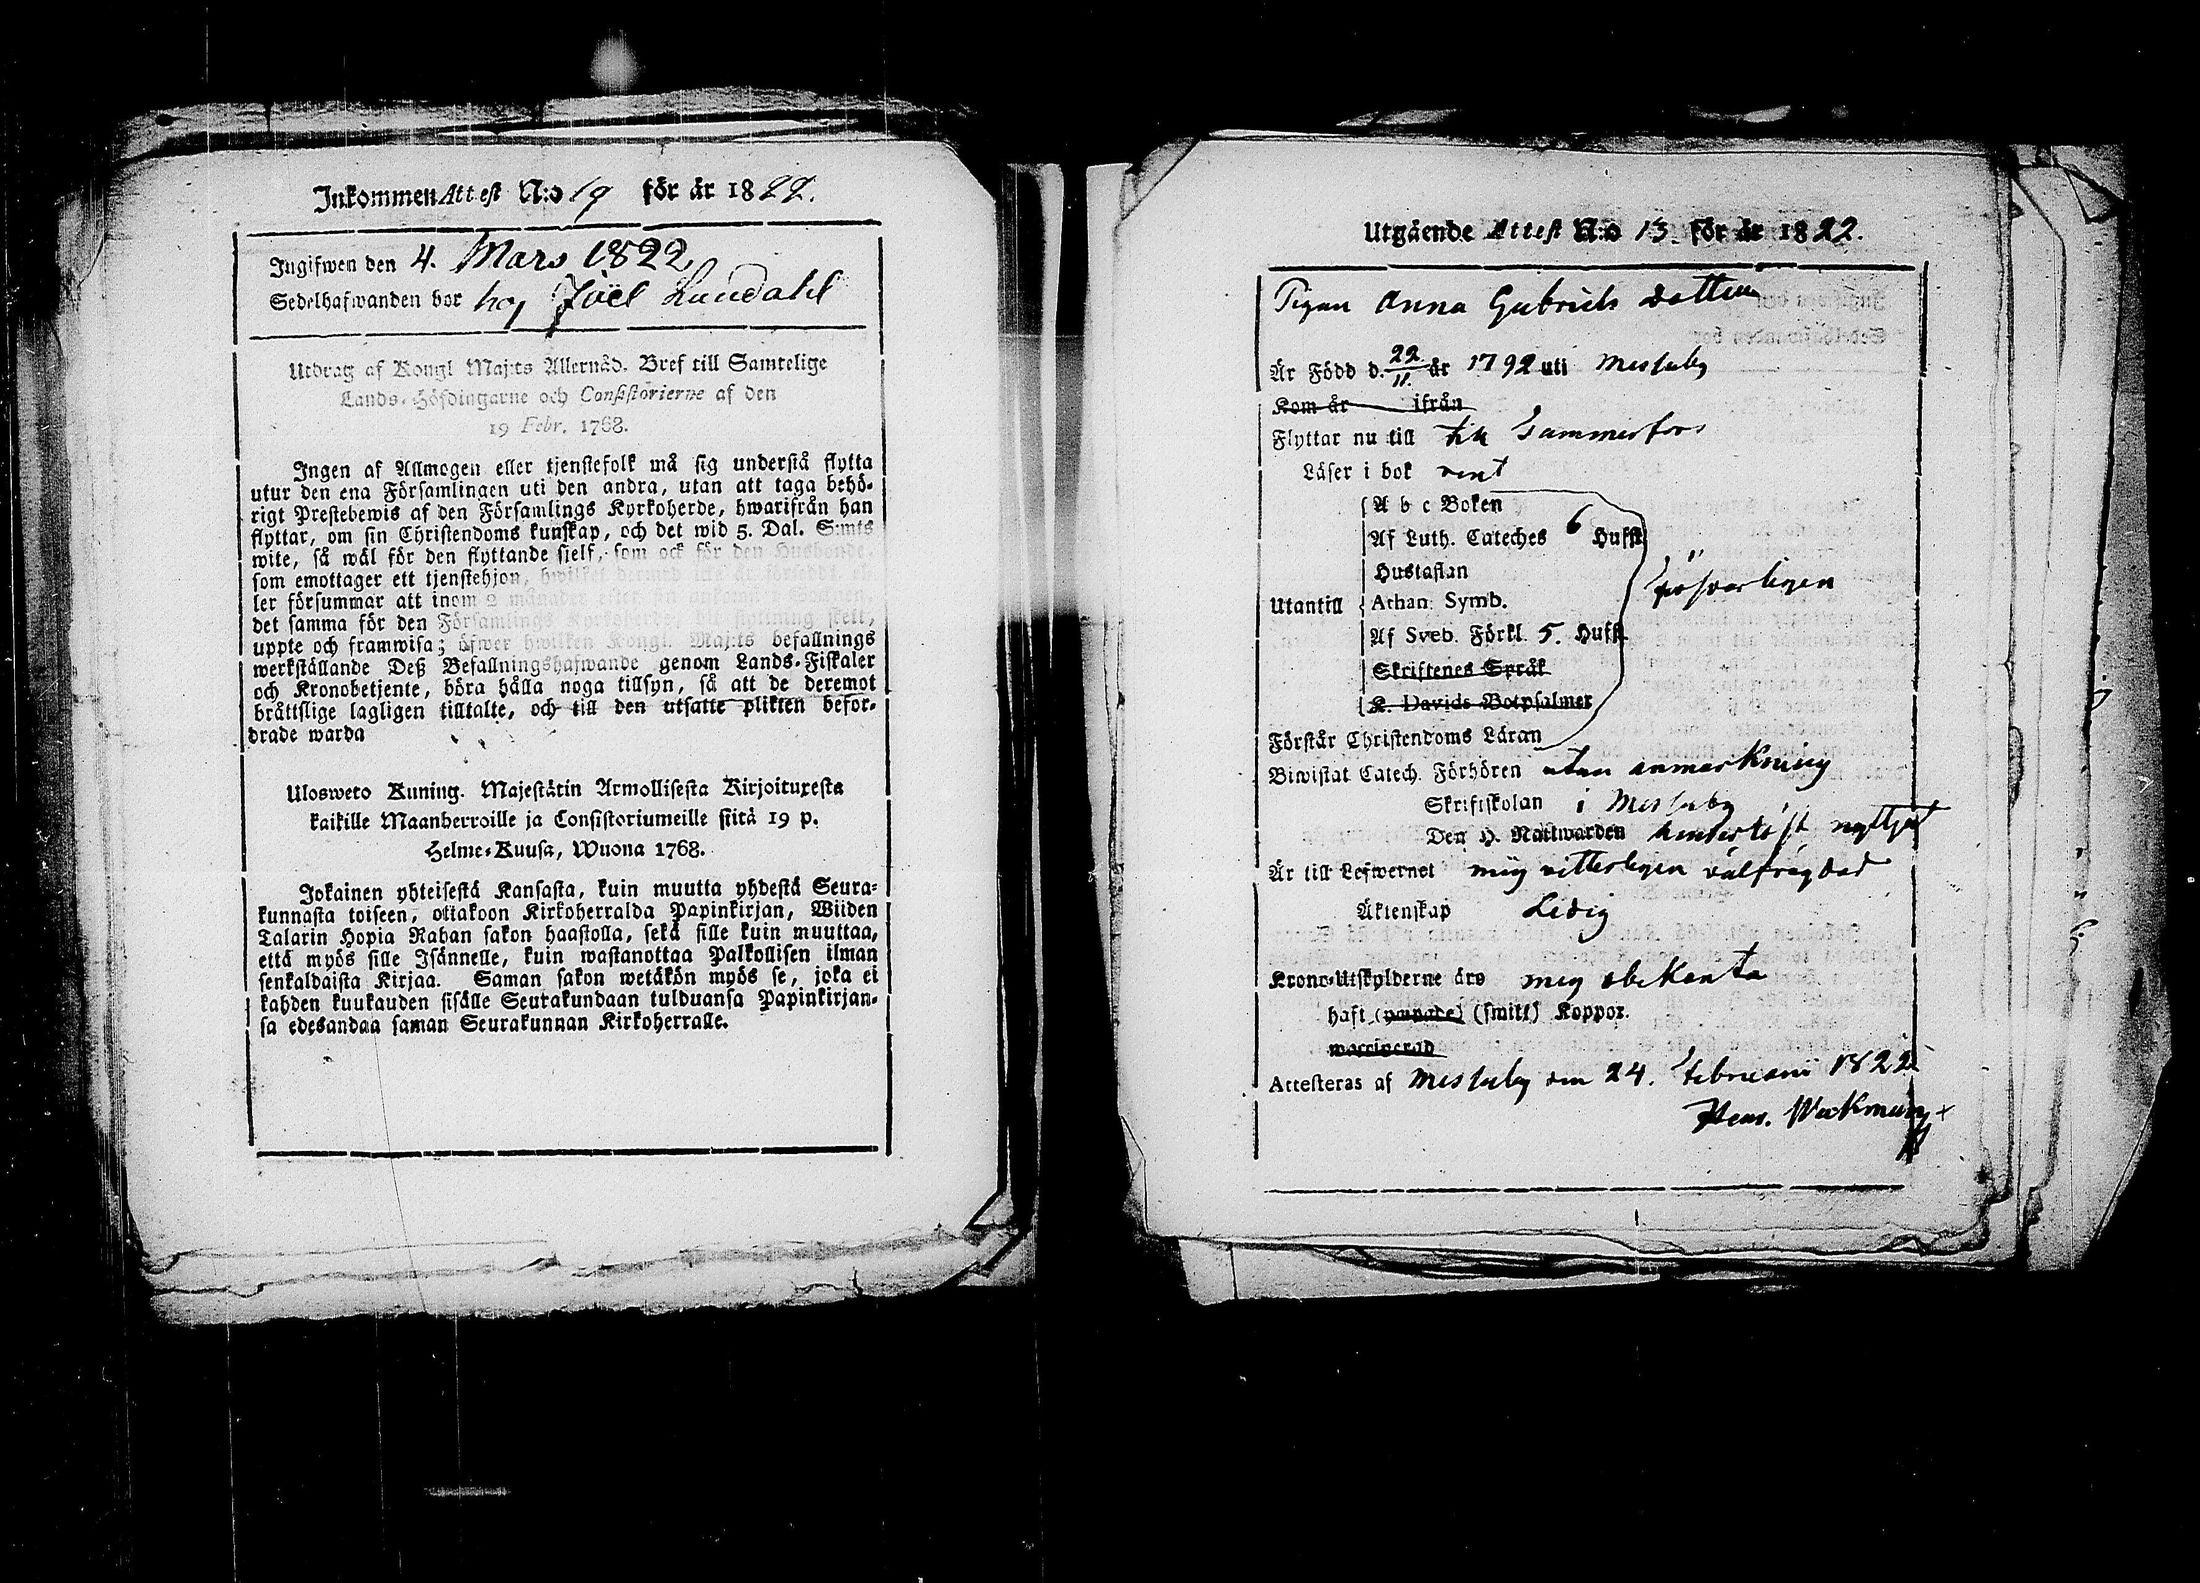 Inkommen Attest N:o 19 för år 1822.
Ingifwen den 4. Mars 1822
Sedelhafwanden bor hoj Joël Lundahl
Utdrag af Kongl Maj:ts Allernåd. Bref till Samtelige
Lands-Höfdingarne och Consistorierne af den
19 Febr. 1768.
Ingen af Allmogen eller tjenstefolk må sig understå flytta
utur den ena Församlingen uti den andra, utan att taga behö-
rigt Prestebewis af den Församlings Kyrkoherde, hwarifrån han
flyttar, om sin Christendoms kunskap, och det wid 5. Dal. S:mts
wite, så wäl för den flyttande sielf, som ock för den Husbonde,
som emottager ett tjenstehjon, hwilket dermed
ler försummar att inom 2 månader efter
det samma för den Församlings Kyrkoherde skett,
uppte och framwisa; öfwer hwilken Kongl. Maj:ts befallnings
werkställande Deß Befallningshafwande genom Lands-Fiskaler
och Kronobetjente, böra hålla noga tillsyn, så att de deremot
bråttslige lagligen tilltalte, och till den utsatte plikten befor-
drade warda
Ulosweto Kuning. Majestätin Armollisesta Kirjoituxesta
kaikille Maanherroille ja Consistoriumeille siitä 19 p.
Helme-Kuusa, Wuona 1768.
Jokainen yhteisestä Kansasta, kuin muutta yhdestä Seura-
kunnasta toiseen, ottakoon Kirkoherralda Papinkirjan, Wiiden
Talarin Hopia Rahan sakon haastolla, sekä sille kuin muuttaa,
että myös sille Isännelle, kuin wastanottaa Palkollisen ilman
senkaldaista Kirjaa. Saman sakon wetäkön myös se, joka ei
kahden kuukauden sisälle Seurakundaan tulduansa Papinkirjan-
sa edesandaa saman Seurakunnan Kirkoherralle.
Utgående Attest N:o 13. för år 1822.
Pigan Anna Gabriels Dotter
Är Född d. 22/11. år 1792 uti Messuby
Kom år ifrån
Flyttar nu till till Tammerfors
Läser i bok rent
Utantill
A b c Boken
Af Luth. Cateches 6 Hufst.
Hustaflan
Athan. Symb.
Af Sveb. Förkl. 5. Hufst.
Skriftenes Språk
K. Davids Botpsalmer
Försvarligen
Förstår Christendoms Läran
Biwistat Catech. Förhören utan anmärkning
Skriftskolan i Messuby
Den H. Nattwarden nyttjat
Är till Lefwernet mig vitterligen välfrägdad
Äktenskap Ledig
Krono-Utskylderne äro mig obekanta
haft (waccine) (smitt) Koppor.
waccinerad
Attesteras af Messuby den 24. Februarii 1822
Wakman